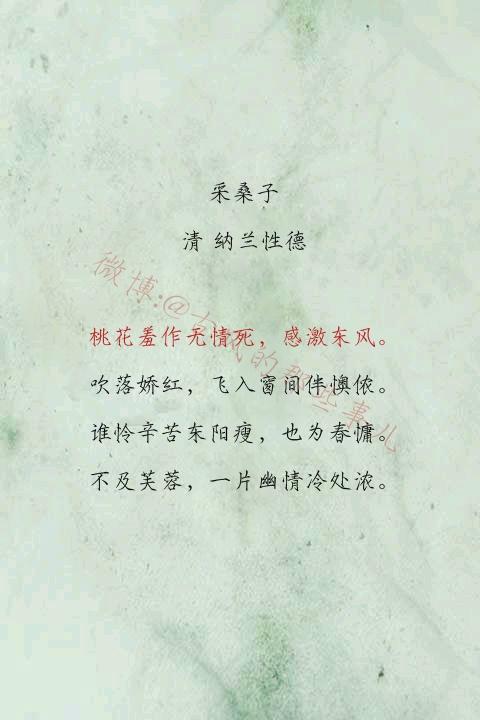 采桑子
清 纳兰性德
桃花羞作无情死，感激东风。
吹落娇红，飞入窗间伴懊侬。
谁怜辛苦东阳瘦，也为春慵。
不及芙蓉，一片幽情冷处浓。
微博:@大
的那些事儿